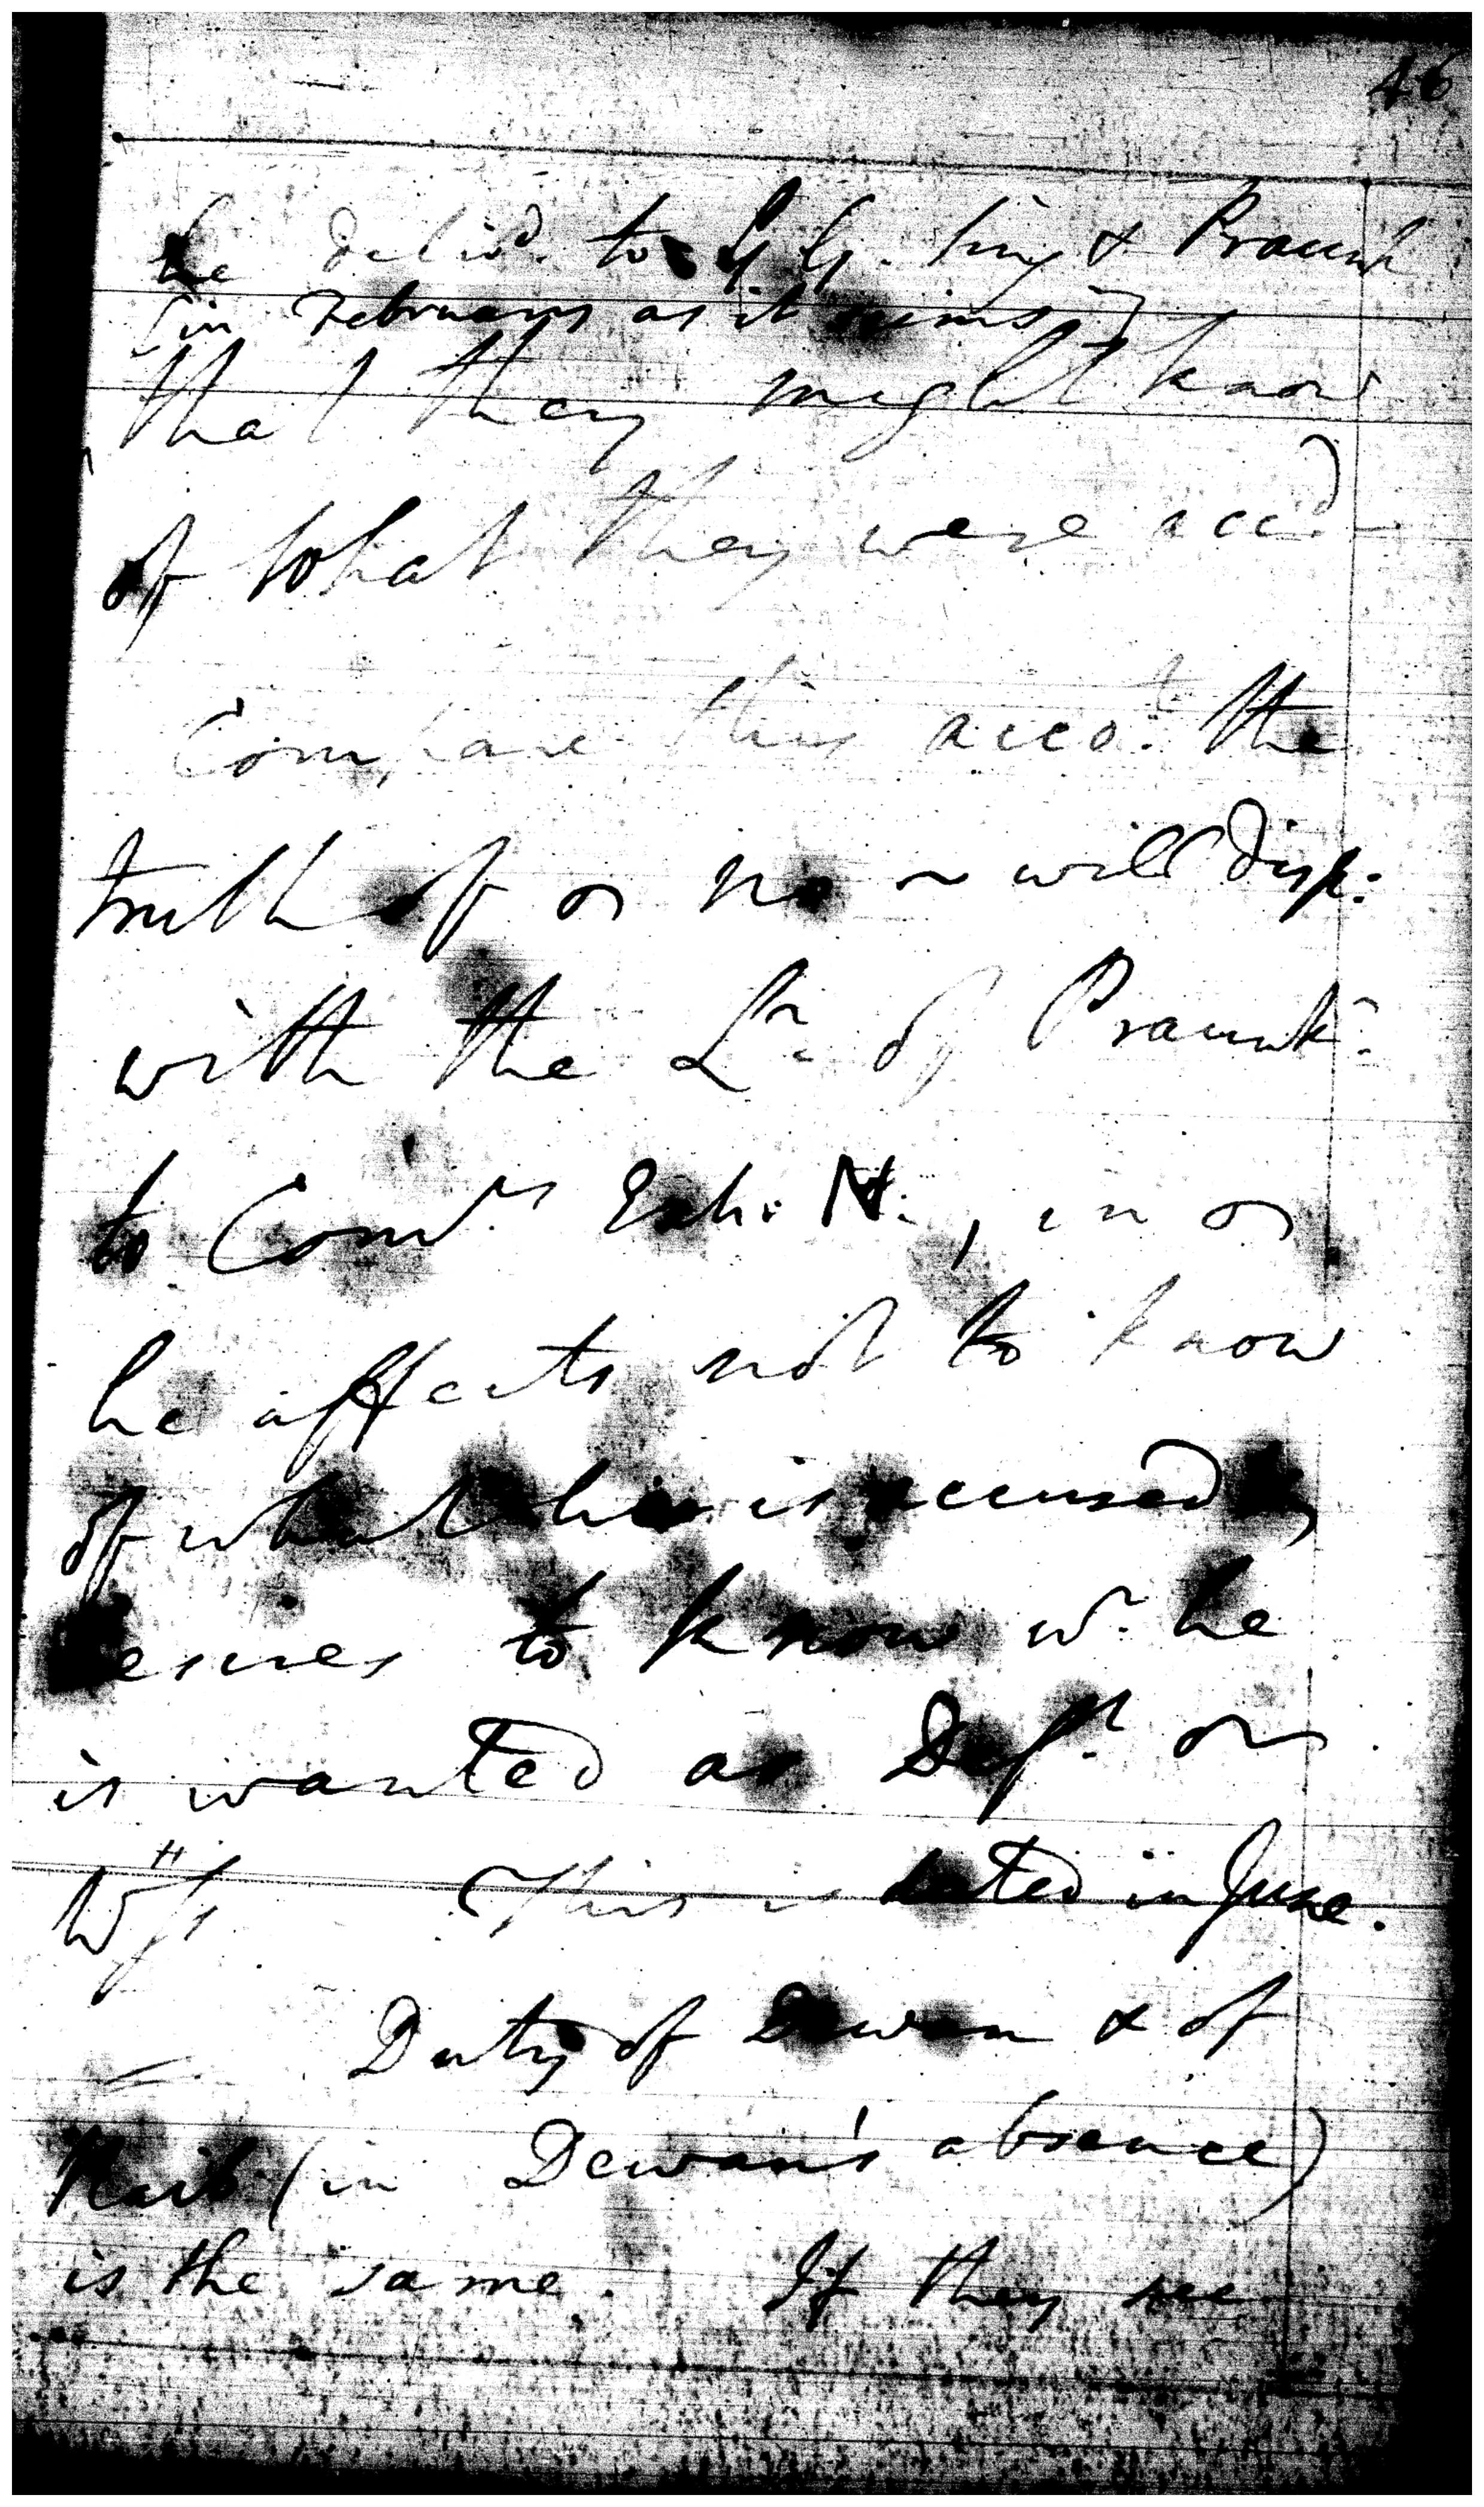 46
he delivd. to G G. Sing & Praunk
[in February as it seems]
that they might know
of what they were accd
Compare this accot. the
truth of or no will disp:
with the Lr of Praunk:
to Comrs Exh: N., in
he affects not to know
of what he is accused,
desires to know wr. he
is wanted as Deft. or
Wss (This is dated in June.
Duty of Dewan & of
Naib (in Dewan's absence)
is the same. If they see